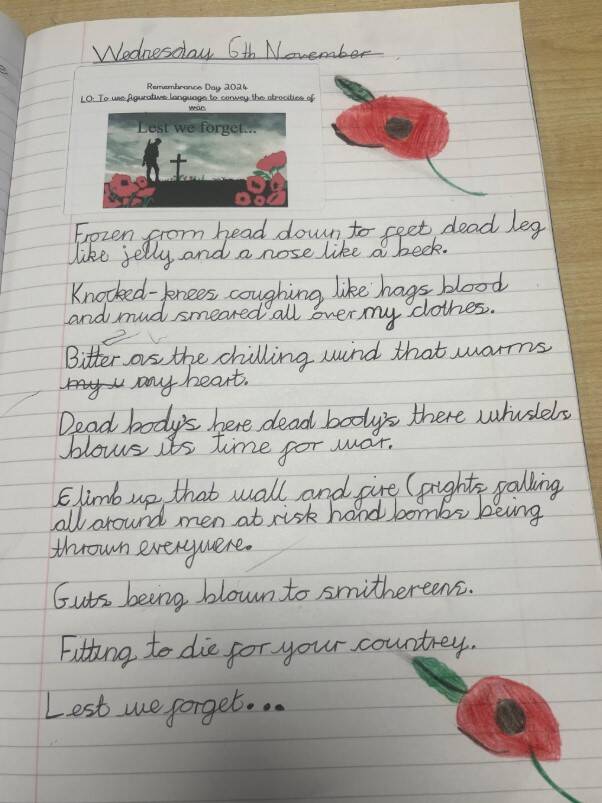 Wednesday 6th November
Remembrance Day 2024
LO: To use figurative language to convey the atrocities of
war.
Lest we forget...
Frozen from head down to feet dead leg
like jelly and a nose like a beck.
Knocked-knees coughing like hags blood
and mud smeared all over my clothes.
Bitter as the chilling wind that warms
my heart.
Dead body's here dead body's there whuslels
blows its time for war.
Climb up that wall and fire (frights falling
all around men at risk hand bombs being
thrown everywere.
Guts being blown to smithereens.
Fitting to die for your countrey.
Lest we forget...